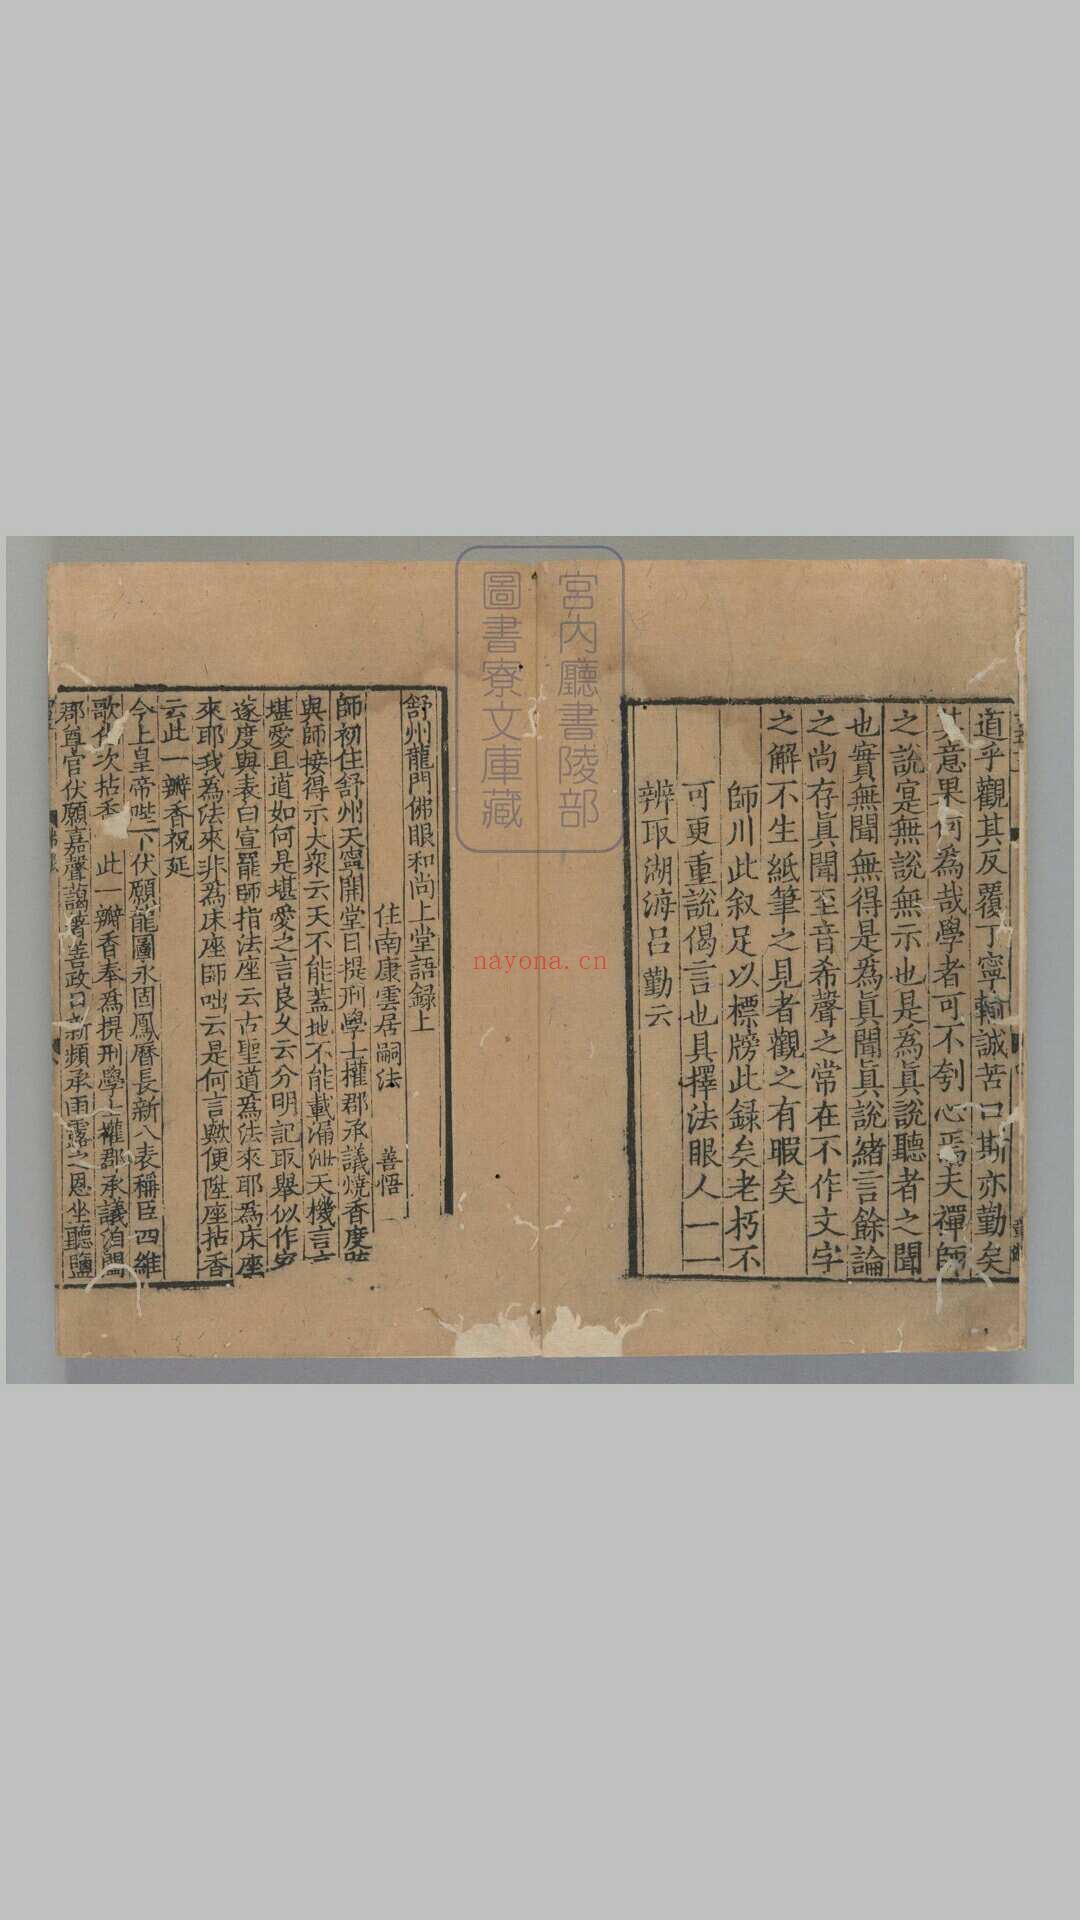 道乎觀其反覆丁寧輸誠苦口斯亦勤矣
其意果何爲哉學者可不刳心焉夫禪師
之說寔無說無示也是爲眞說聽者之聞
也實無聞無得是爲眞聞眞說緒言餘論
之尚存眞聞至音希聲之常在不作文字
之解不生紙筆之見者觀之有暇矣
師川此叙足以標牓此録矣老朽不
可更重說偈言也具擇法眼人一一
辨取湖海呂勤云
宮內廳書陵部
圖書寮文庫藏
nayona.cn
舒州龍門佛眼和尚上堂語録上
住南康雲居嗣法 善悟
師初住舒州天寧開堂日提刑學士權郡承議燒香度疏
與師接得示大衆云天不能蓋地不能載漏泄天機言言
堪愛且道如何是堪愛之言良久云分明記取舉似作家
遂度與表白宣罷師指法座云古聖道爲法來耶爲床座
來耶我爲法來非爲床座師咄云是何言歟便陞座拈香
云此一瓣香祝延
今上皇帝陛下伏願龍圖永固鳳曆長新八表稱臣四維
歌化次拈香 此一瓣香奉爲提刑學士權郡承議洎闔
郡尊官伏願嘉聲藹著善政日新頻承雨露之恩坐聽鹽